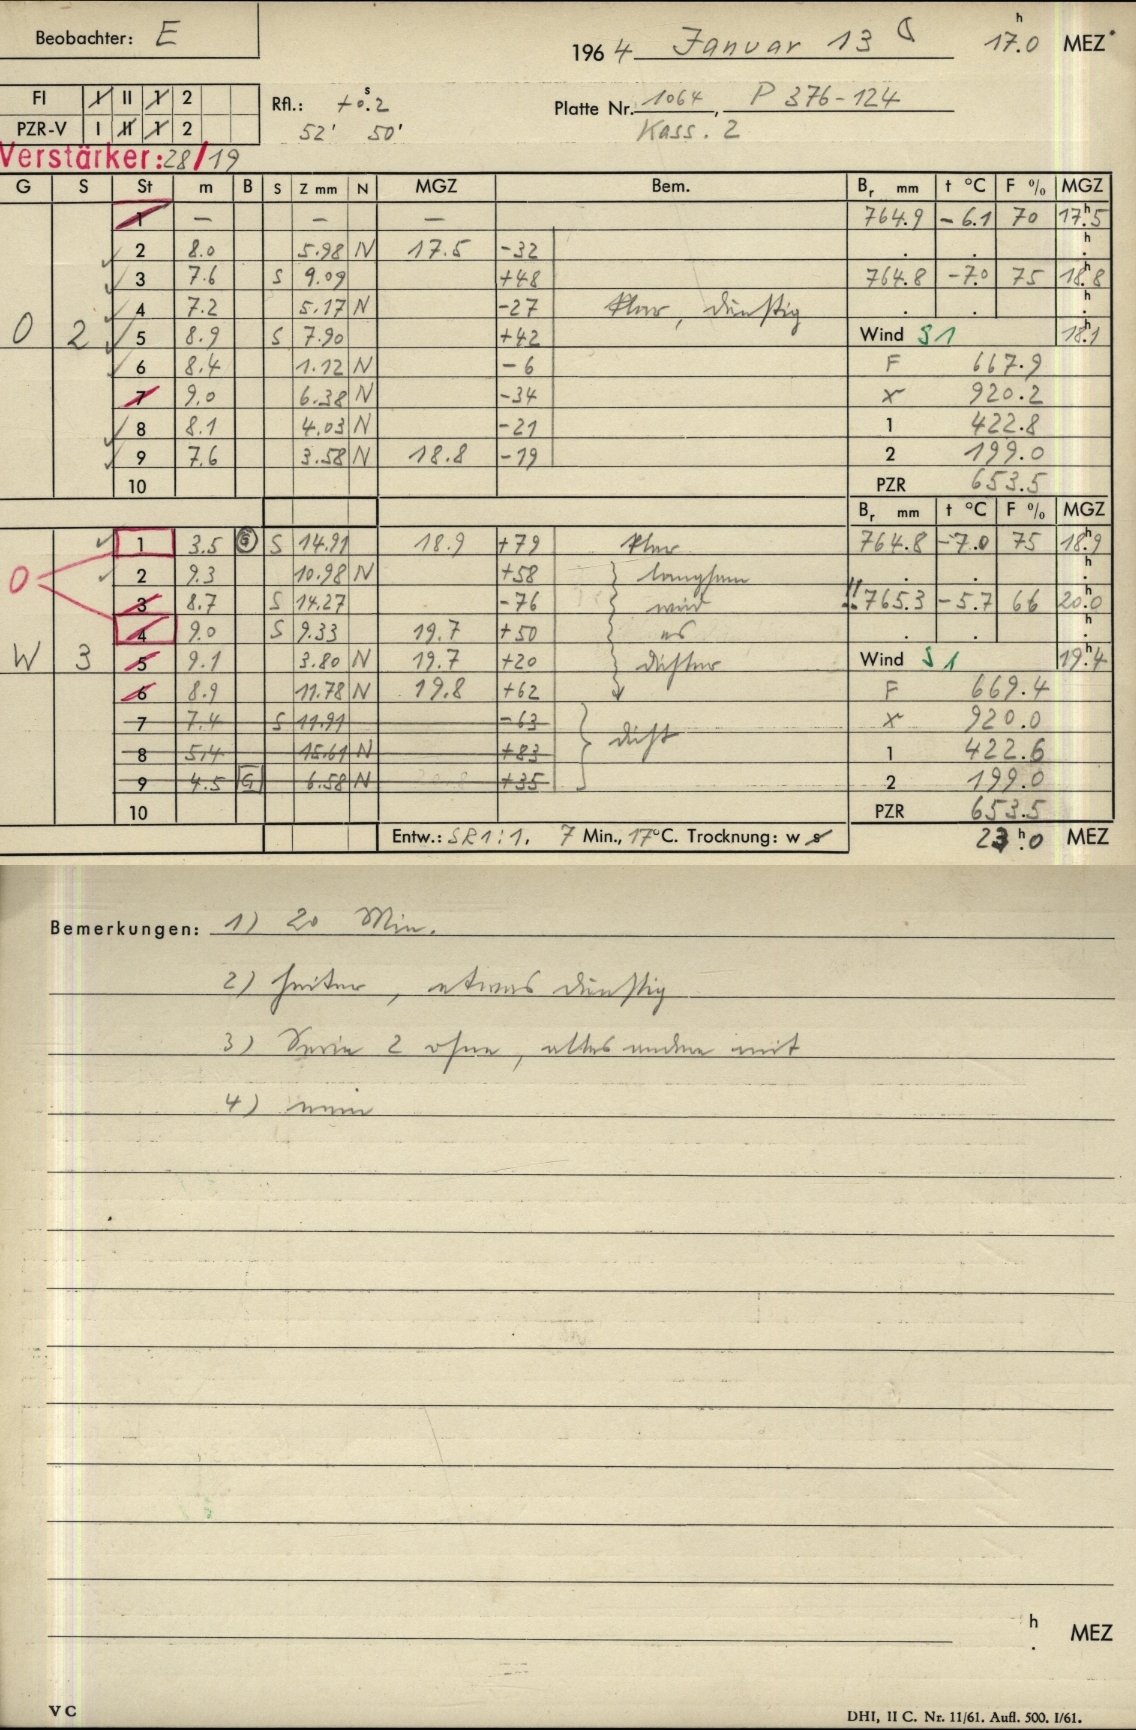 Beobachter: E
1964 Januar 13 17h.0 MEZ
FI I II 1 2
PZR-V I II 1 2
Rfl.: +0s.2
52' 50'
Platte Nr. 1064, P 376-124
Kass. 2
Verstärker: 28/19
G S St m B S Z mm N MGZ Bem. Br mm t °C F % MGZ
1 — — — 764.9 -6.1 70 17h.5
2 8.0 5.98 N 17.5 -32 . . h.
3 7.6 S 9.09 +48 764.8 -7.0 75 18h.8
4 7.2 5.17 N -27 klar, dunstig . . h.
O 2 5 8.9 S 7.90 +42 Wind S1 18h.1
6 8.4 1.12 N -6 F 667.9
7 9.0 6.38 N -34 x 920.2
8 8.1 4.03 N -21 1 422.8
9 7.6 3.58 N 18.8 -19 2 199.0
10 PZR 653.5
Br mm t °C F % MGZ
1 3.5 G S 14.91 18.9 +79 klar 764.8 -7.0 75 18h.9
O 2 9.3 10.98 N +58 langsam . . h.
3 8.7 S 14.27 -76 wird !! 765.3 -5.7 66 20h.0
4 9.0 S 9.33 19.7 +50 es . . h.
W 3 5 9.1 3.80 N 19.7 +20 dichter Wind S1 19h.4
6 8.9 11.78 N 19.8 +62 F 669.4
7 7.4 S 11.91 -63 x 920.0
8 5.4 15.61 N +83 dicht 1 422.6
9 4.5 G 6.58 N +35 2 199.0
10 PZR 653.5
Entw.: SR1:1. 7 Min., 17°C. Trocknung: w s 23h.0 MEZ
Bemerkungen: 1) 20 Min.
2) heiter, etwas dunstig
3) Serie 2 ohne, alles andere mit
4) nein
h. MEZ
V C
DHI, II C. Nr. 11/61. Aufl. 500. I/61.